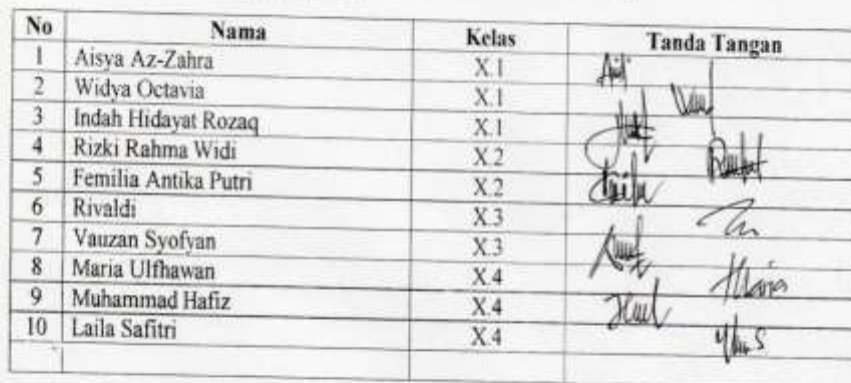 No Nama Kelas Tanda Tangan
1 Aisya Az-Zahra X.1
2 Widya Octavia X.1
3 Indah Hidayat Rozaq X.1
4 Rizki Rahma Widi X.2
5 Femilia Antika Putri X.2
6 Rivaldi X.3
7 Vauzan Syofyan X.3
8 Maria Ulfhawan X.4
9 Muhammad Hafiz X.4
10 Laila Safitri X.4